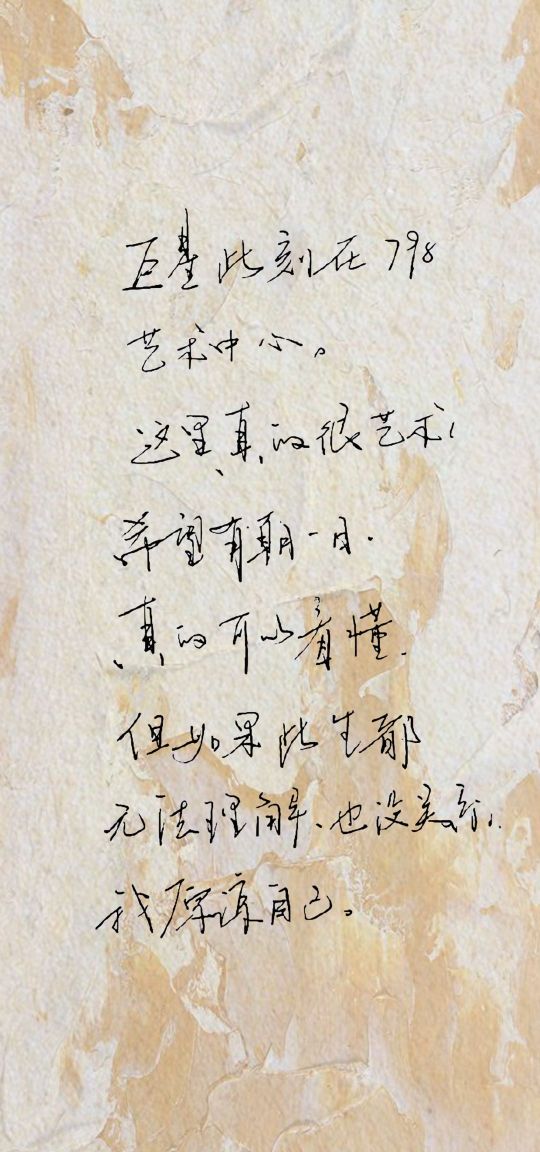 巨星此刻在798
艺术中心。
这里真的很艺术,
希望有朝一日.
真的可以看懂.
但如果此生都
无法理解、也没关系,
我原谅自己。